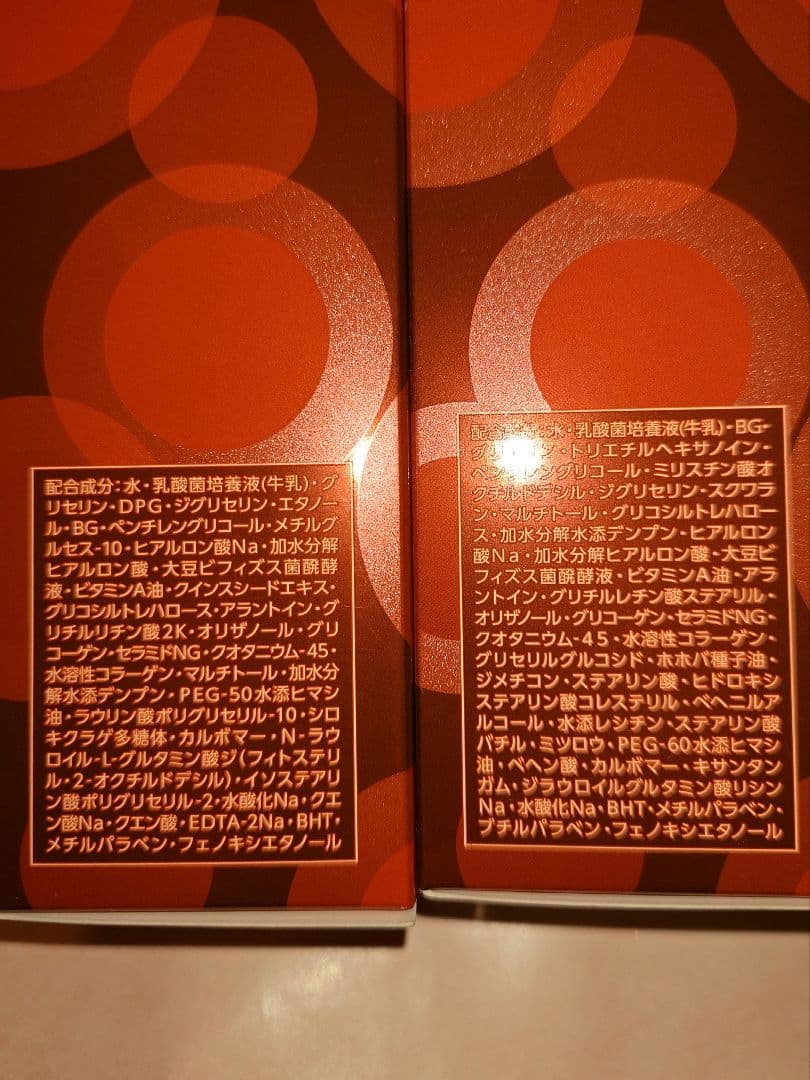 配合成分：水・乳酸菌培養液(牛乳)・グ
リセリン・DPG・ジグリセリン・エタノー
ル・BG・ペンチレングリコール・メチルグ
ルセス-10・ヒアルロン酸Na・加水分解
ヒアルロン酸・大豆ビフィズス菌醗酵
液・ビタミンA油・クインスシードエキス・
グリコシルトレハロース・アラントイン・グ
リチルリチン酸2K・オリザノール・グリ
コーゲン・セラミドNG・クオタニウム-45・
水溶性コラーゲン・マルチトール・加水分
解水添デンプン・PEG-50水添ヒマシ
油・ラウリン酸ポリグリセリル-10・シロ
キクラゲ多糖体・カルボマー・N-ラウ
ロイル-L-グルタミン酸ジ(フィトステリ
ル・2-オクチルドデシル)・イソステアリ
ン酸ポリグリセリル-2・水酸化Na・クエ
ン酸Na・クエン酸・EDTA-2Na・BHT・
メチルパラベン・フェノキシエタノール
配合 水・乳酸菌培養液(牛乳)・BG・
グリ ン・トリエチルヘキサノイン・
ペン レングリコール・ミリスチン酸オ
クチルドデシル・ジグリセリン・スクワラ
ン・マルチトール・グリコシルトレハロー
ス・加水分解水添デンプン・ヒアルロン
酸Na・加水分解ヒアルロン酸・大豆ビ
フィズス菌醗酵液・ビタミンA油・アラ
ントイン・グリチルレチン酸ステアリル・
オリザノール・グリコーゲン・セラミドNG・
クオタニウム-45・水溶性コラーゲン・
グリセリルグルコシド・ホホバ種子油・
ジメチコン・ステアリン酸・ヒドロキシ
ステアリン酸コレステリル・ベヘニルア
ルコール・水添レシチン・ステアリン酸
バチル・ミツロウ・PEG-60水添ヒマシ
油・ベヘン酸・カルボマー・キサンタン
ガム・ジラウロイルグルタミン酸リシン
Na・水酸化Na・BHT・メチルパラベン・
ブチルパラベン・フェノキシエタノール